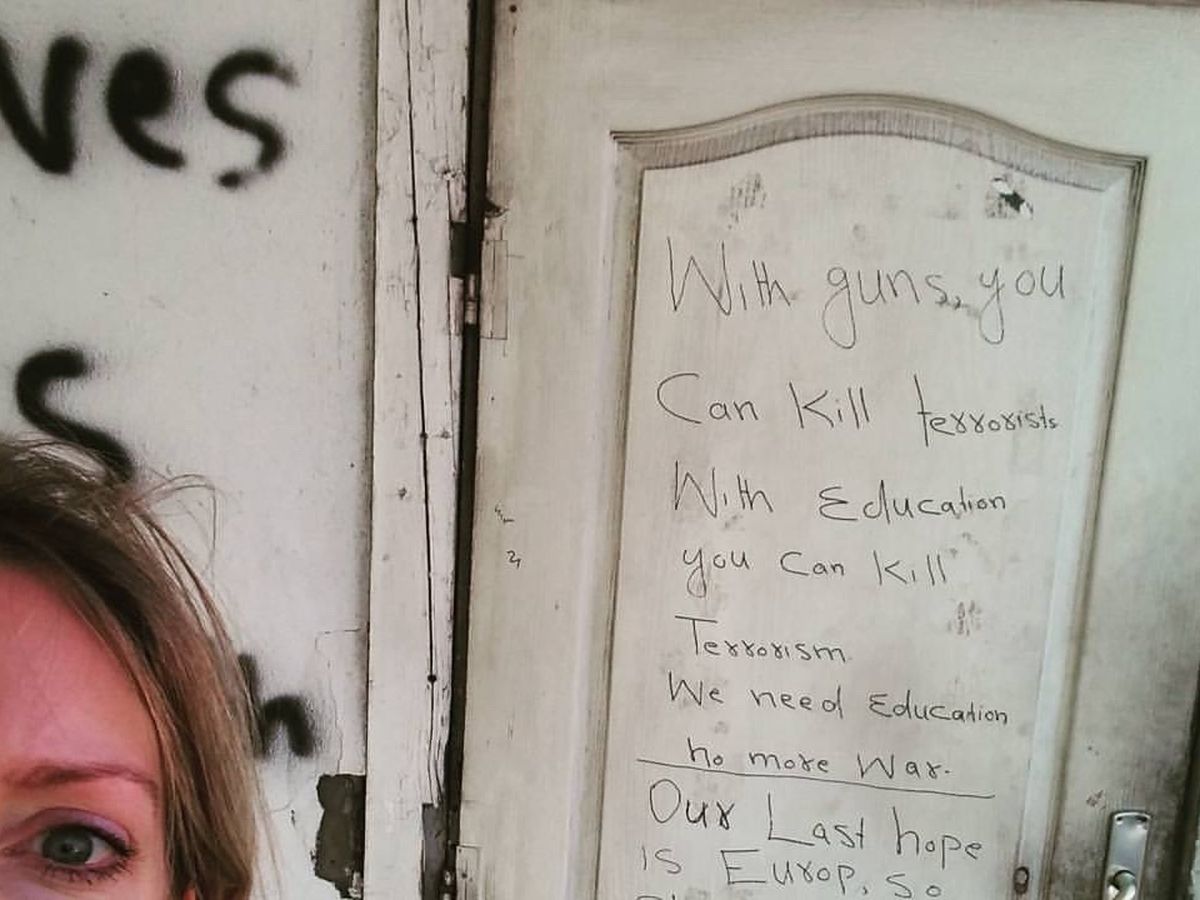 ves
s
h
With guns, you
Can Kill terrorists
With Education
you Can Kill
Terrorism.
We need Education
no more War.
Our Last hope
is Europ, so